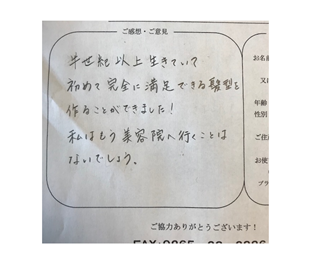 ご感想・ご意見
半世紀以上生きていて
初めて完全に満足できる髪型を
作ることができました!
私はもう美容院へ行くことは
ないでしょう。
お名前
年齢
性別
ご協力ありがとうございます!